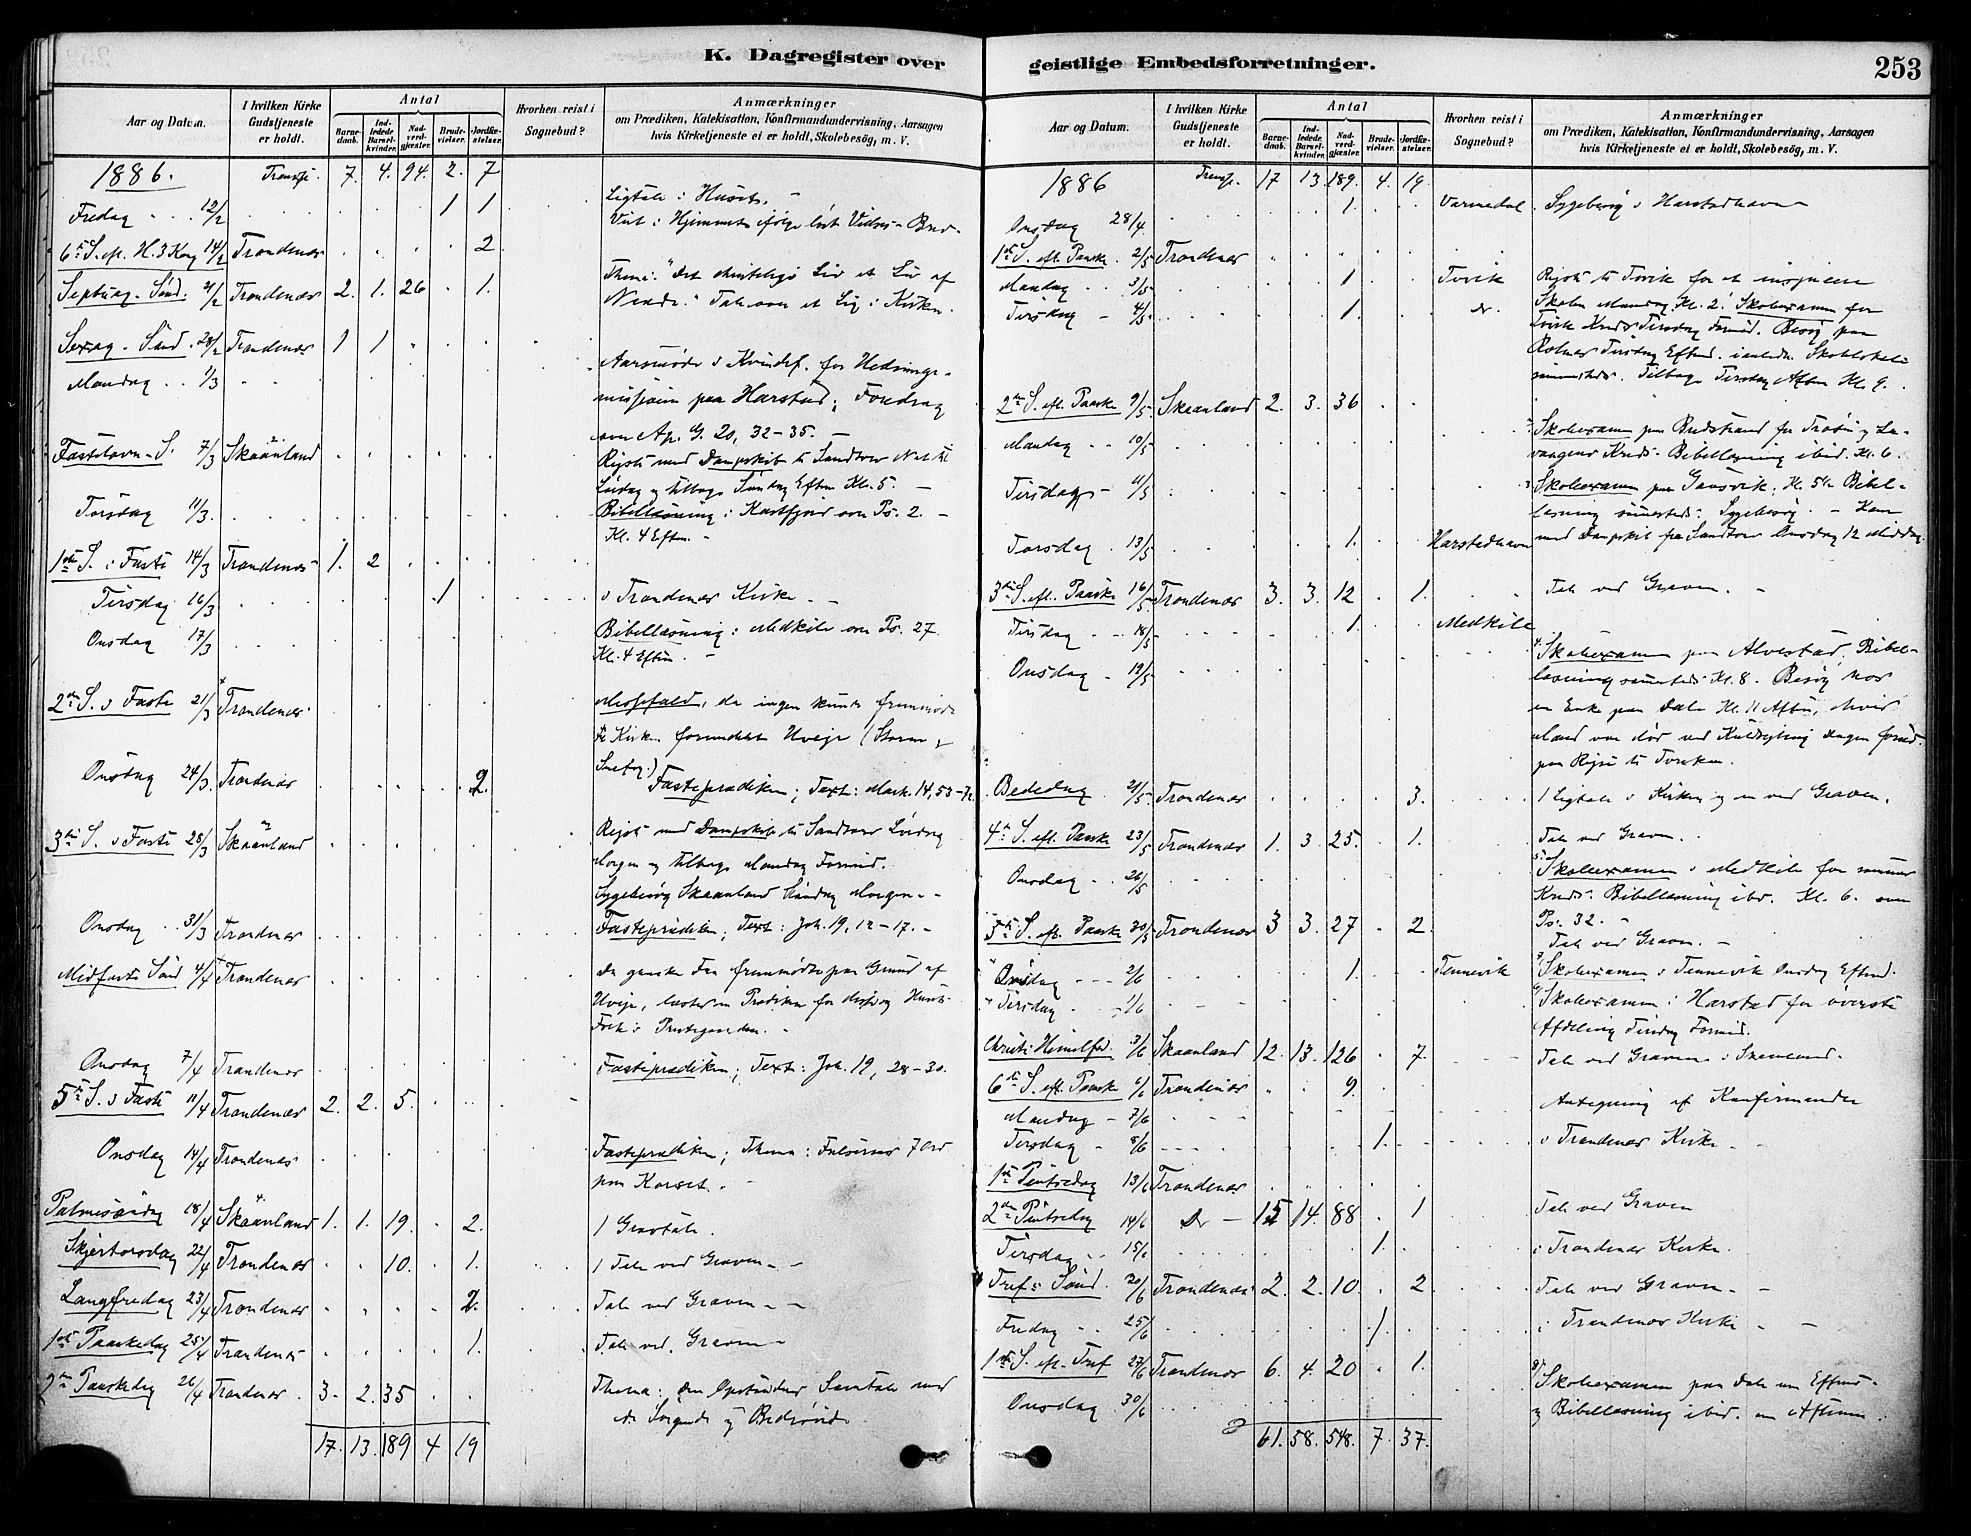 K. Dagregister over
geistlige Embedsforretninger.
253
Aar og Datum.
I hvilken Kirke Gudstjeneste er holdt.
Antal
Barne-daab.
Ind-ledede Barsel-kvinder.
Nad-verd-gjæster.
Brude-vielser.
Jordfæ-stelser.
Hvorhen reist i Sognebud?
Anmærkninger
om Prædiken, Katekisation, Konfirmandundervisning, Aarsagen
hvis Kirketjeneste ei er holdt, Skolebesög, m. V.
1886. Transp. 7. 4. 94. 2. 7
Fredag 12/2 1 1 Ligtale i Huset.
6te S. ef. H. 3 Kong 14/2 Trondenæs 2
Septuag. Sönd. 21/2 Trondenæs 2. 1. 26 1. Thema: "Det christelige Liv et Liv af
Naade." Tale over et Lig i Kirken.
Sexag. Sönd. 28/2 Trondenæs 1 1
Mandag 1/3 Aarsmöde i Kvindef. for Hedninge-
missionen paa Harstad; Foredrag
over Ap. G. 20, 32-35.
Fastelavn-S. 7/3 Skaanland Rejste med Dampskib til Sandtorv Nat til
Lördag og tilbage Söndag Eften Kl. 5.
Torsdag 11/3. Bibellæsning i Kastfjord over Ps. 2.
Kl. 4 Eftm.
1ste S. i Faste 14/3 Trondenæs 1. 2
Tirsdag 16/3 1 i Trondenæs Kirke
Onsdag 17/3 Bibellæsning i Medkile over Ps. 27.
Kl. 4 Eftm.
2den S. i Faste 21/3 Trondenæs Messefald, da ingen kunde fremmöde
til Kirken formedelst Uvejr (Storm &
Snefog.)
Onsdag 24/3 Trondenæs 2. Fasteprædiken; Text: Mark. 14, 53-72.
3die S. i Faste 28/3 Skaanland Rejste med Dampskib til Sandtorv Lördag
Morgen og tilbage Mandag Formid.
Sygebesög Skaanland Söndag Morgen.
Onsdag 31/3 Trondenæs Fasteprædiken; Text: Joh. 19, 12-17.
Midfaste Sönd 4/4 Trondenæs Da ganske Faa fremmödte paa Grund af
Uvejr, læstes en Prædiken for
Folk i Præstegaarden.
Onsdag 7/4 Trondenæs Fasteprædiken; Text: Joh. 19, 28-30.
5te S. i Faste 11/4 Trondenæs 2. 2. 5.
Onsdag 14/4 Trondenæs Fasteprædiken; Thema: Frelserens 7 Ord
paa Korset.
Palmesöndag 18/4 Skaanland 1. 1. 19. 2. 1 Gravtale.
Skjærtorsdag 22/4 Trondenæs 10. 1. 1 Tale ved Graven
Langfredag 23/4 Trondenæs 2. Tale ved Graven
1ste Paaskedag 25/4 Trondenæs 1. Tale ved Graven
2den Paaskedag 26/4 Trondenæs 3. 2. 35 Thema: Den Opstandnes Samtale med
de Sörgende og Bedrövede
17. 13. 189 4 19
Aar og Datum.
I hvilken Kirke Gudstjeneste er holdt.
Antal
Barne-daab.
Ind-ledede Barsel-kvinder.
Nad-verd-gjæster.
Brude-vielser.
Jordfæ-stelser.
Hvorhen reist i Sognebud?
Anmærkninger
om Prædiken, Katekisation, Konfirmandundervisning, Aarsagen
hvis Kirketjeneste ei er holdt, Skolebesög, m. V.
1886 Transp. 17 13. 189. 4. 19.
Onsdag 28/4 1. Varmedal. Sygebesög i Harstadhavn
1ste S. eft. Paaske 2/5 Trondenæs
Mandag 3/5 1 Tovik Rejste til Tovik for at inspicere
Tirsdag 4/5 1. do. Skolen Mandag Kl. 2. Skoleexamen for
Tovik Kreds Tirsdag Formid. Besög paa
Rolnæs Tirsdag Eftmd.
Tilbage Tirsdag Aften Kl. 9.
2den S. eft. Paaske 9/5 Skaanland 2. 3. 36
Mandag 10/5 Skoleexamen paa
Kreds. Bibellæsning ibid. Kl. 6.
Tirsdag 11/5 Skoleexamen paa Gausvik, Bibel-
læsning Sygebesög. Kom
Torsdag 13/5 1. Harstadhavn med Dampskib fra Sandtorv Onsdag 12 Middag.
3die S. eft. Paaske 16/5 Trondenæs 3. 3. 12 1. Tale ved Graven.
Tirsdag 18/5 1. Medkile
Onsdag 19/5 Skoleexamen paa Alvestad, Bibel-
læsning sammesteds Kl. 8. Besög hos
en Enke paa Dale Kl. 11 Aften, hvis
Mand var död ved Kuldsejling Dagen forud
paa Rejse til
Bededag 21/5 Trondenæs 3. 1 Ligtale i Kirken og en ved Graven.
4de S. eft. Paaske 23/5 Trondenæs 1. 3. 25. 1. Tale ved Graven.
Onsdag 26/5 Skoleexamen i Medkile for samme
Kreds. Bibellæsning ibid. Kl. 6. over
Ps. 32.
5te S. eft. Paaske 30/5 Trondenæs 3 3. 27 2. Tale ved Graven.
Onsdag 2/6 1. Tennevik Skoleexamen i Tennevik Onsdag Eftmd.
Tirsdag 1/6 Skoleexamen i Harstad for överste
Afdeling Tirsdag Formid.
Christi Himmelfd. 3/6 Skaanland 12. 13. 126 7. Tale ved Graven i Skaanland.
6te S. eft. Paaske 6/6 Trondenæs 9.
Mandag 7/6 Antegning af Konfirmander
Tirsdag 8/6 1. i Trondenæs Kirke
1ste Pintsedag 13/6 Trondenæs
2den Pintsedag 14/6 Do 15 14. 88 1 Tale ved Graven
Tirsdag 15/6 1. i Trondenæs Kirke.
Tref: Sönd. 20/6 Trondenæs 2. 2. 10. 2 Tale ved Graven
Fredag 25/6 1. i Trondenæs Kirke
1ste S. ef. Tref 27/6 Trondenæs 6. 4. 20 1.
Onsdag 30/6 Skoleexamen paa Dale om Eftmd.
og Bibellæsning ibid. om Aftenen.
61. 58. 548. 7. 37.